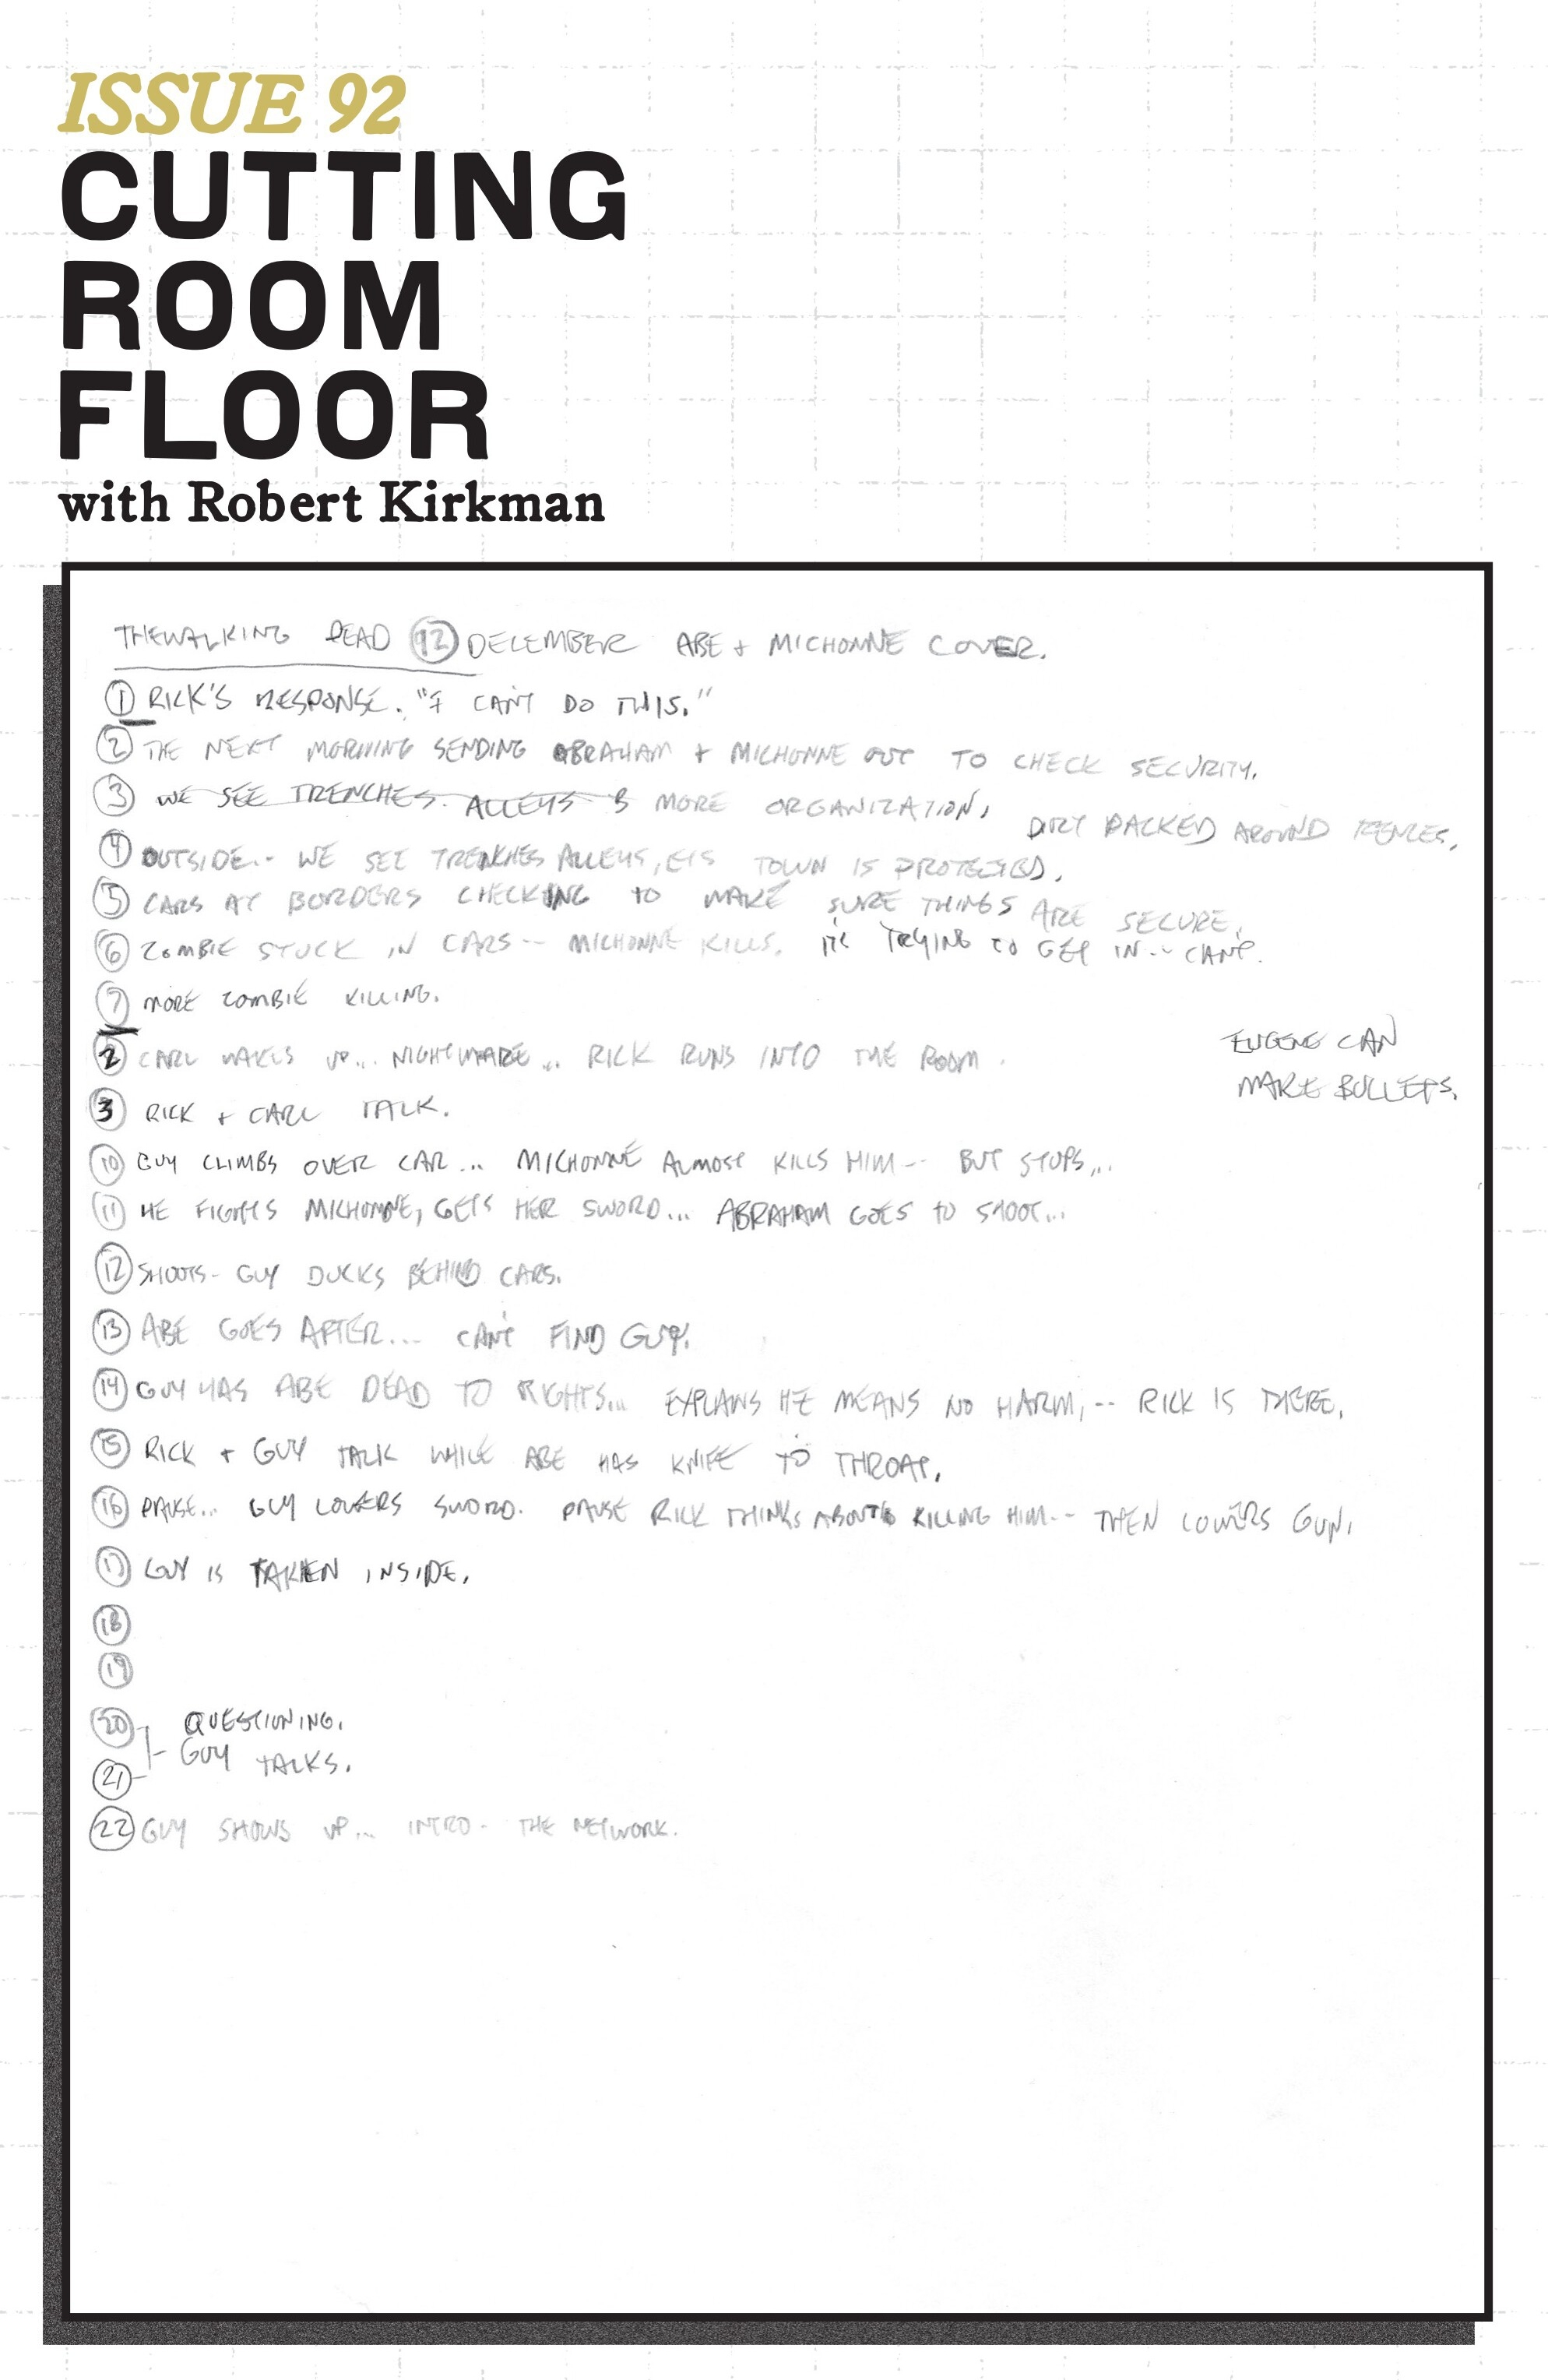 ISSUE 92
CUTTING
ROOM
FLOOR
with Robert Kirkman
THE WALKING DEAD 92 DECEMBER ABE + MICHONNE COVER.
1 RICK'S RESPONSE. "I CAN'T DO THIS."
2 THE NEXT MORNING SENDING ABRAHAM + MICHONNE OUT TO CHECK SECURITY.
3 WE SEE TRENCHES. ALLEYS MORE ORGANIZATION, DIRT PACKED AROUND FENCES.
4 OUTSIDE.- WE SEE TRENCHES ALLEYS, ETS TOWN IS PROTECTED.
5 CARS AT BORDERS CHECKING TO MAKE SURE THINGS ARE SECURE.
6 ZOMBIE STUCK IN CARS -- MICHONNE KILLS. TRYING TO GET IN -- CAN'T.
7 MORE ZOMBIE KILLING.
2 CARL WAKES UP... NIGHTMARE... RICK RUNS INTO THE ROOM.
EUGENE CAN
MAKE BULLETS.
3 RICK + CARL TALK.
10 GUY CLIMBS OVER CAR... MICHONNE ALMOST KILLS HIM -- BUT STOPS...
11 HE FIGHTS MICHONNE, GETS HER SWORD... ABRAHAM GOES TO SHOOT...
12 SHOOTS- GUY DUCKS BEHIND CARS.
13 ABE GOES AFTER... CAN'T FIND GUY.
14 GUY HAS ABE DEAD TO RIGHTS... EXPLAINS HE MEANS NO HARM, -- RICK IS THERE.
15 RICK + GUY TALK WHILE ABE HAS KNIFE TO THROAT.
16 PAUSE... GUY LOWERS SWORD. PAUSE RICK THINKS ABOUT KILLING HIM -- THEN LOWERS GUN.
17 GUY IS TAKEN INSIDE.
18
19
20 QUESTIONING.
21 GUY TALKS.
22 GUY SHOWS UP... INTRO - THE NETWORK.